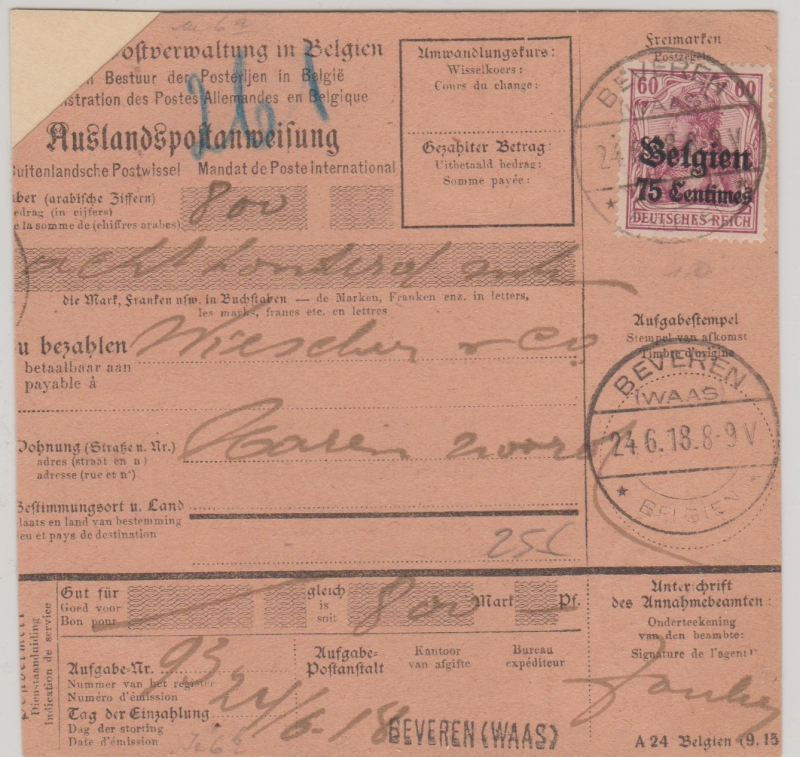 ostverwaltung in Belgien
n Bestuur der Posterijen in België
istration des Postes Allemandes en Belgique
Auslandspostanweisung
uitenlandsche Postwissel Mandat de Poste international
über (arabische Ziffern)
edrag (in cijfers)
e la somme de (chiffres arabes)
800
die Mark, Franken usw. in Buchstaben — de Marken, Franken enz. in letters,
les marks, francs etc. en lettres
u bezahlen
betaalbaar aan
payable á
& Co
Wohnung (Straße u. Nr.)
adres (straat en n )
adresse (rue et n°)
Bestimmungsort u. Land
laats en land van bestemming
eu et pays de destination
Umwandlungskurs:
Wisselkoers:
Cours du change:
Gezahlter Betrag:
Uitbetaald bedrag:
Somme payée:
Freimarken
Postzegels
BEVEREN
(WAAS)
60 60
Belgien
75 Centimes
DEUTSCHES REICH
Aufgabestempel
Stempel van afkomst
Timbre d'origine
BEVEREN
(WAAS)
24.6.18.8-9V
* BELGIEN *
Gut für
Goed voor
Bon pour
gleich
is
soit
800
Mark
Pf.
Dienstaanduiding
Indication de service
Aufgabe-Nr.
Nummer van het register
Numéro d'émission
93
Tag der Einzahlung
Dag der storting
Date d'émission
24/6.18
Aufgabe-
Postanstalt
Kantoor
van afgifte
Bureau
expéditeur
BEVEREN (WAAS)
Unterschrift
des Annahmebeamten:
Onderteekening
van den beambte:
Signature de l'agent:
A 24 Belgien (9.15